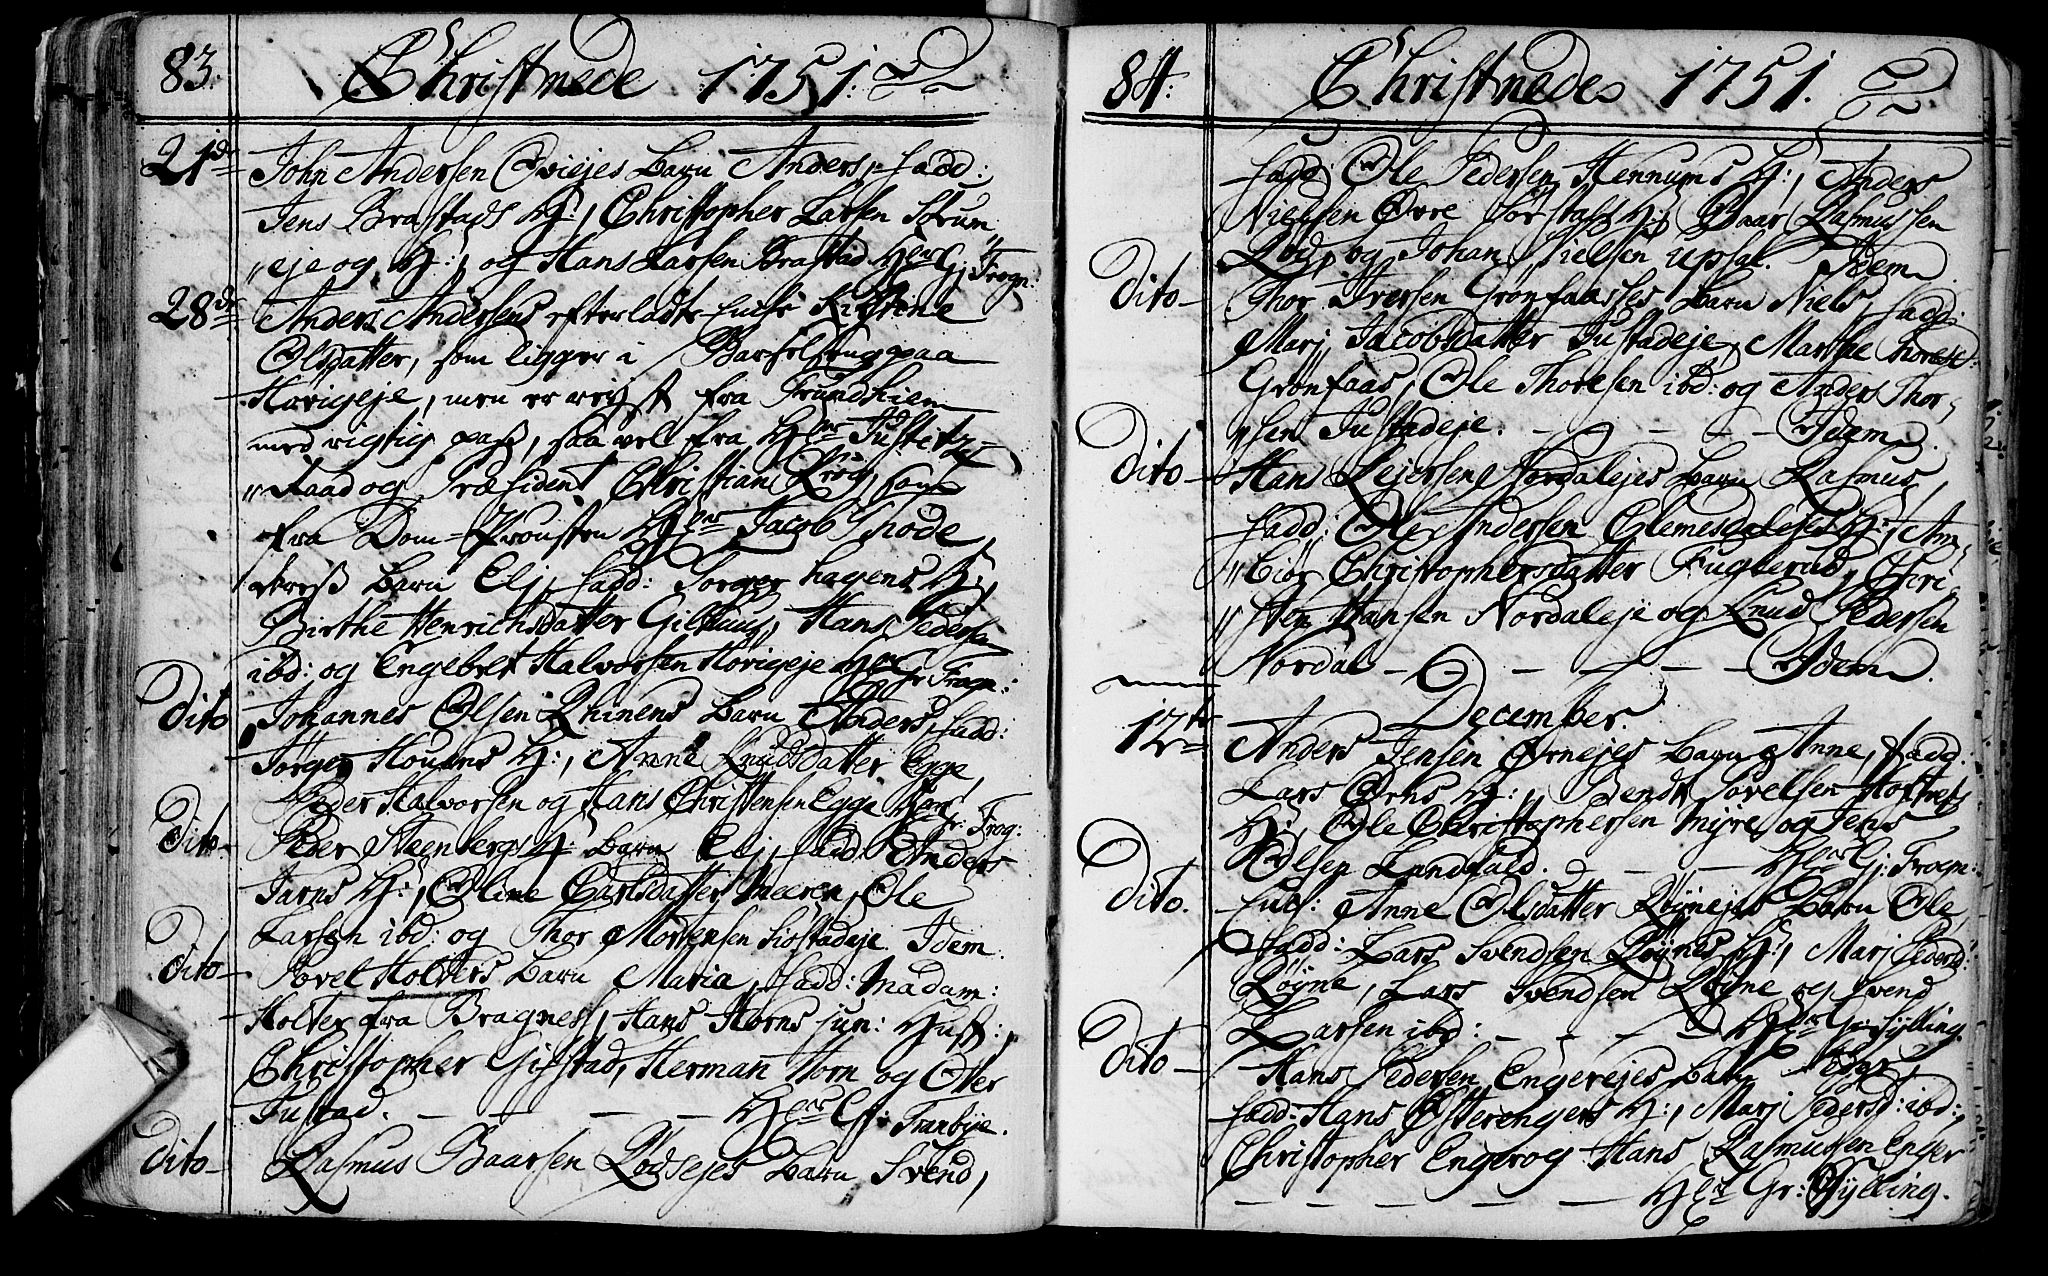 83. Christnede 1751.
21de John Andersen Qviejes Barn Anders, Fadd:
Jens Brastads H:, Christopher Larsen Strum
eje og H:, og Hans Larsen Brastad. Hler G: Trogn:
28de Anders Andersens efterladte Enche Kirstine
Olsdatter, som ligger i Barselseng paa
Horigeje, men er reyst fra Trundhiem
med rigtig Pass, saa vel fra Hler Justitz
Raad og Præsident Christian Krog, som
fra Dom-Prousten Hler Jacob Thode,
Barn Elj, Fadd: Sorger Hagens H:,
Birthe Henrichsdatter Gilhuus, Hans Pedersen
ibd: og Engebret Halvorsen Horigeje Hler Gr Trogn:
Dito Johannes Olsen Rhinens Barn Anders, Fadd:
Jørger Houens H:, Anne Knudsdatter Egge,
Peder Halvorsen og Hans Christensen Egge Hler Gr: Trog:
Dito- Peder Steenbergs H: Barn Elj, Fadd: Anders
Jarns H:, Oline Carlsdatter Mæren, Ole
Larsen ibd: og Thor Mortensen Liostadeje. Idem.
Dito- Povel Holters Barn Maria, Fadd: Madam:
Holter fra Bragness, Hans Horns jun: Hust:,
Christopher Gifstad, Herman Horn og Otter
Justad. - - - - Hler G: Tranbye.
Dito- Rasmus Baarsen Rodsejes Barn Svend,
84: Christnede 1751.
Fadd: Ole Pedersen Hennums H:, Anders
Nielsen Øvre Sørstads H:, Baar Rasmussen
Rod, og Johan Nielsen Upsal. Idem
Dito- Thor Iversen Grønfaasses Barn Niels, Fadd:
Marj Jacobsdatter Justadeje, Marthe Thoresd:
Grønfaas, Ole Thoresen ibd: og Anders Thor-
sen Justadeje. - - - - Idem.
Dito- Hans Lejersens Nordalejes Barn Rasmus,
Fadd: Ole Andersen Clemesdalejes H:, An-
biør Christophersdatter Fuglerud, Chri
sten Hansen Nordaleje og Knud Pedersen
Nordal - - - - - Idem.
December.
12te Anders Jensen Ørnejes Barn Anne, Fadd:
Lars Ørns H:, Bendt Povelsen Hoftvets
H:, Ole Christophersen Myre, og Jens
Olsen Landfald. - - - Hler G: Trogn:
Dito. Enc: Anne Olsdatter Røynejes Barn Ole,
Fadd: Lars Svendsen Røynes H:, Marj Pedersd:
Røyne, Lars Svendsen Røyne og Svend
Larsen ibd: - - - Hler Gr: Sylling.
Dito- Hans Pedersen Engerejes Barn Peder,
Fadd: Hans Østerengers H:, Marj Pedersd: ibd:,
Christopher Enger og Hans Rasmussen Enger
- - - - Hler Gr: Sylling.